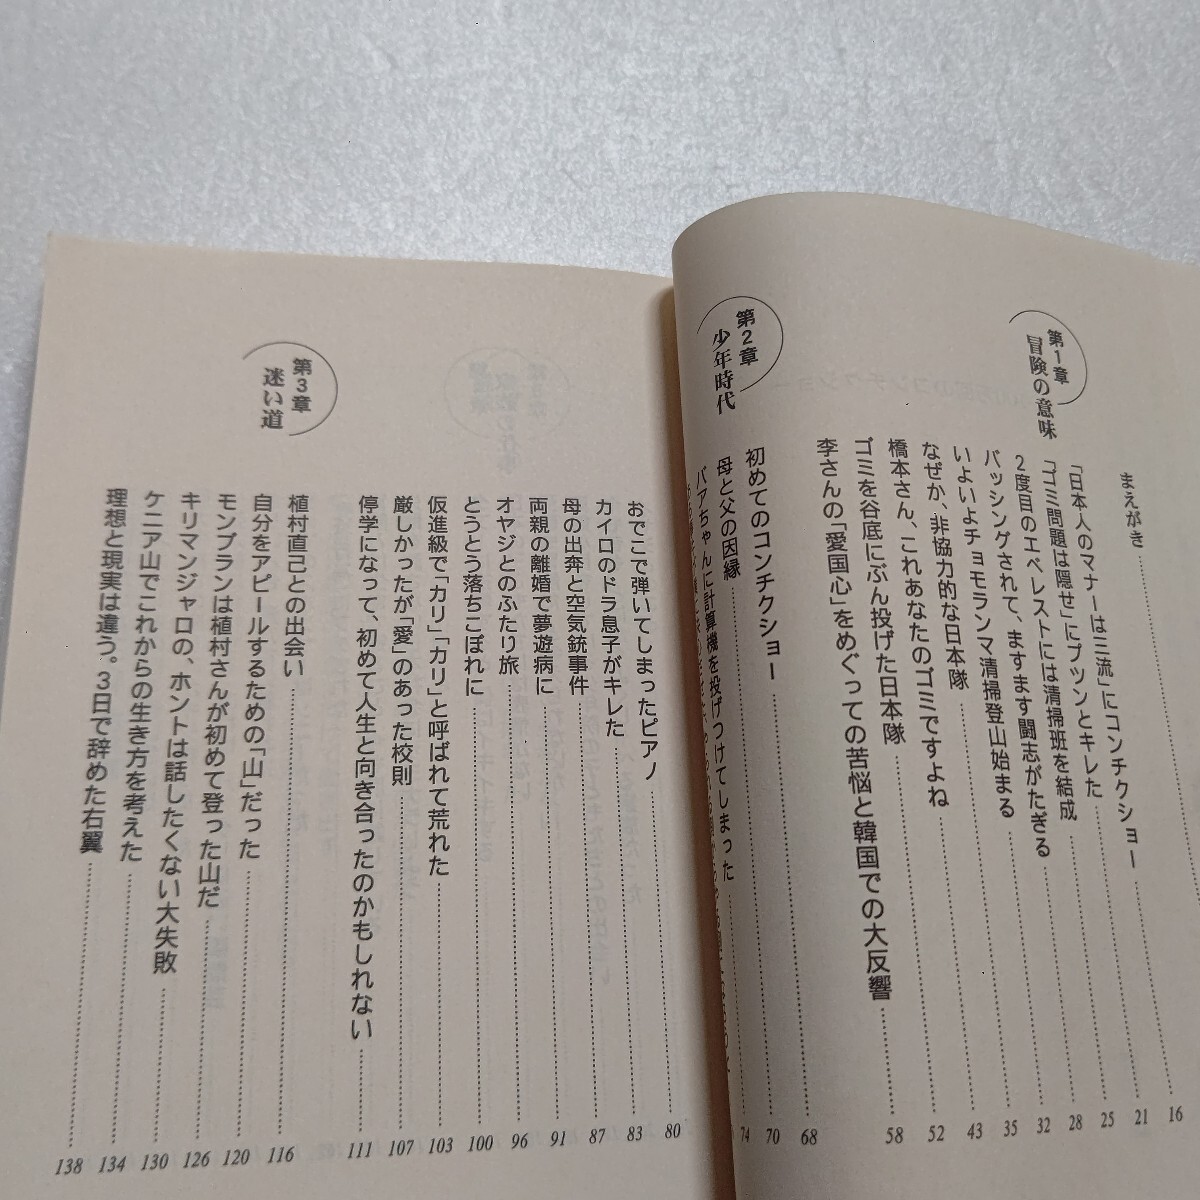 まえがき
第1章
冒険の意味
「日本人のマナーは三流」にコンチクショー 16
「ゴミ問題は隠せ」にプツンとキレた 21
2度目のエベレストには清掃班を結成 25
バッシングされて、ますます闘志がたぎる 28
いよいよチョモランマ清掃登山始まる 32
なぜか、非協力的な日本隊 35
橋本さん、これあなたのゴミですよね 43
ゴミを谷底にぶん投げた日本隊 52
李さんの「愛国心」をめぐっての苦悩と韓国での大反響 58
第2章
少年時代
初めてのコンチクショー 68
母と父の因縁 70
バアちゃんに計算機を投げつけてしまった 74
おでこで弾いてしまったピアノ 80
カイロのドラ息子がキレた 83
母の出奔と空気銃事件 87
両親の離婚で夢遊病に 91
オヤジとのふたり旅 96
とうとう落ちこぼれに 100
仮進級で「カリ」「カリ」と呼ばれて荒れた 103
厳しかったが「愛」のあった校則 107
停学になって、初めて人生と向き合ったのかもしれない 111
第3章
迷い道
植村直己との出会い 116
自分をアピールするための「山」だった 120
モンブランは植村さんが初めて登った山だ 126
キリマンジャロの、ホントは話したくない大失敗 130
ケニア山でこれからの生き方を考えた 134
理想と現実は違う。3日で辞めた右翼 138